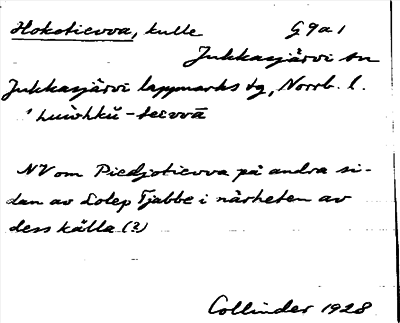 Hokotievva, kulle G9a1
Jukkasjärvi sn
Jukkasjärvi lappmarks tg, Norrb. l.
NV om Piedjotievva på andra si-
dan av Lolep Tjabbe i närheten av
dess källa (?)
Collinder 1928